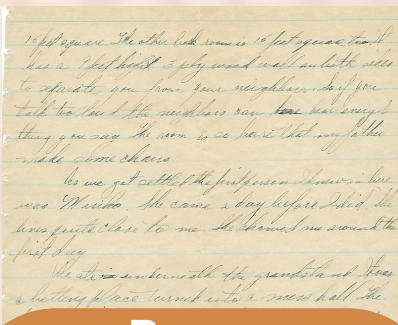 15 feet square The other back room is 15 feet square too. It
has a 7 feet hight 3 ply wood wall on both sides
to separate you from your neighbors. So if you
talk too loud the neighbors can hear every
thing you say. The room is so bare that my father
made some chairs.
As we got settled the first person I knew in here
was Miriko. She came a day before I did. She
lives quite close to me. She showed me around the
first day.
We ate underneath the grandstand. It was
a betting place turned into a mess hall. The